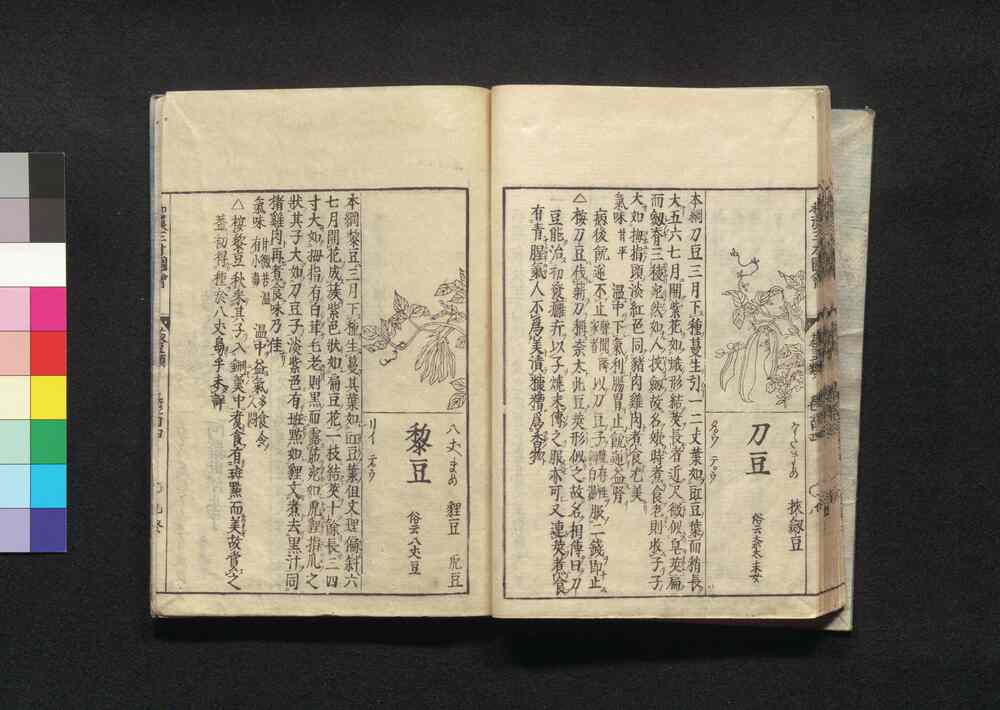 刀豆
なたまめ
挾劔豆
俗云奈太末女
タウ テウ
本綱刀豆三月下種蔓生引一二丈葉如豇豆葉而稍長
大五六七月開紫花如蛾形結莢長者近尺微似皂莢扁
而劔脊三稜宛然如人挾劔故名嫩時煮食老則收子子
大如拇指頭淡紅色同豬肉雞肉煮食尤美
氣味 甘平 溫中下氣利腸胃止呃逆益腎
病後呃逆不止聲聞隣家者以刀豆子服二錢即止
△按刀豆伐薪刀稱奈太此豆莢形似之故名相傳曰刀
豆能治初發癰疔以子燒末傳之服亦可又連莢煮食
有青腥氣人不爲美漬糠糟爲香物
黎豆
八丈まめ
貍豆 虎豆
俗云八丈豆
リイ テウ
本綱黎豆三月下種生蔓其葉如豇豆葉但文理偏斜六
七月開花成簇紫色狀如扁豆花一枝結莢十餘長三四
寸大如拇指有白茸毛老則黑而露筋宛如乾貍指爪之
狀其子大如刀豆子淡紫色有斑點如貍文煮去黑汁同
豬雞肉再煮食味乃佳
氣味 甘微苦溫有小毒 溫中益氣多食令人悶
△按黎豆秋采其子入銅羹中煮食有斑黑而美故賞之
蓋初得種於八丈島乎未詳